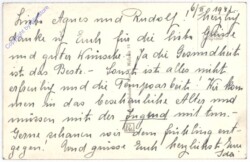 6/3 1941
Liebe Agnes und Rudolf! Herzlich
danke ich Euch für die liebe Grüsse
und guter Wünsche - Ja die Gesundheit
ist das Beste - Sonst ist alles nicht
erfreulich und Wir kommen
in das beschauliche Alter und
müssen mit der Jugend mit tun -
Gerne schauen wir dem frühling ent-
gegen! Und grüsse Euch herzlichst